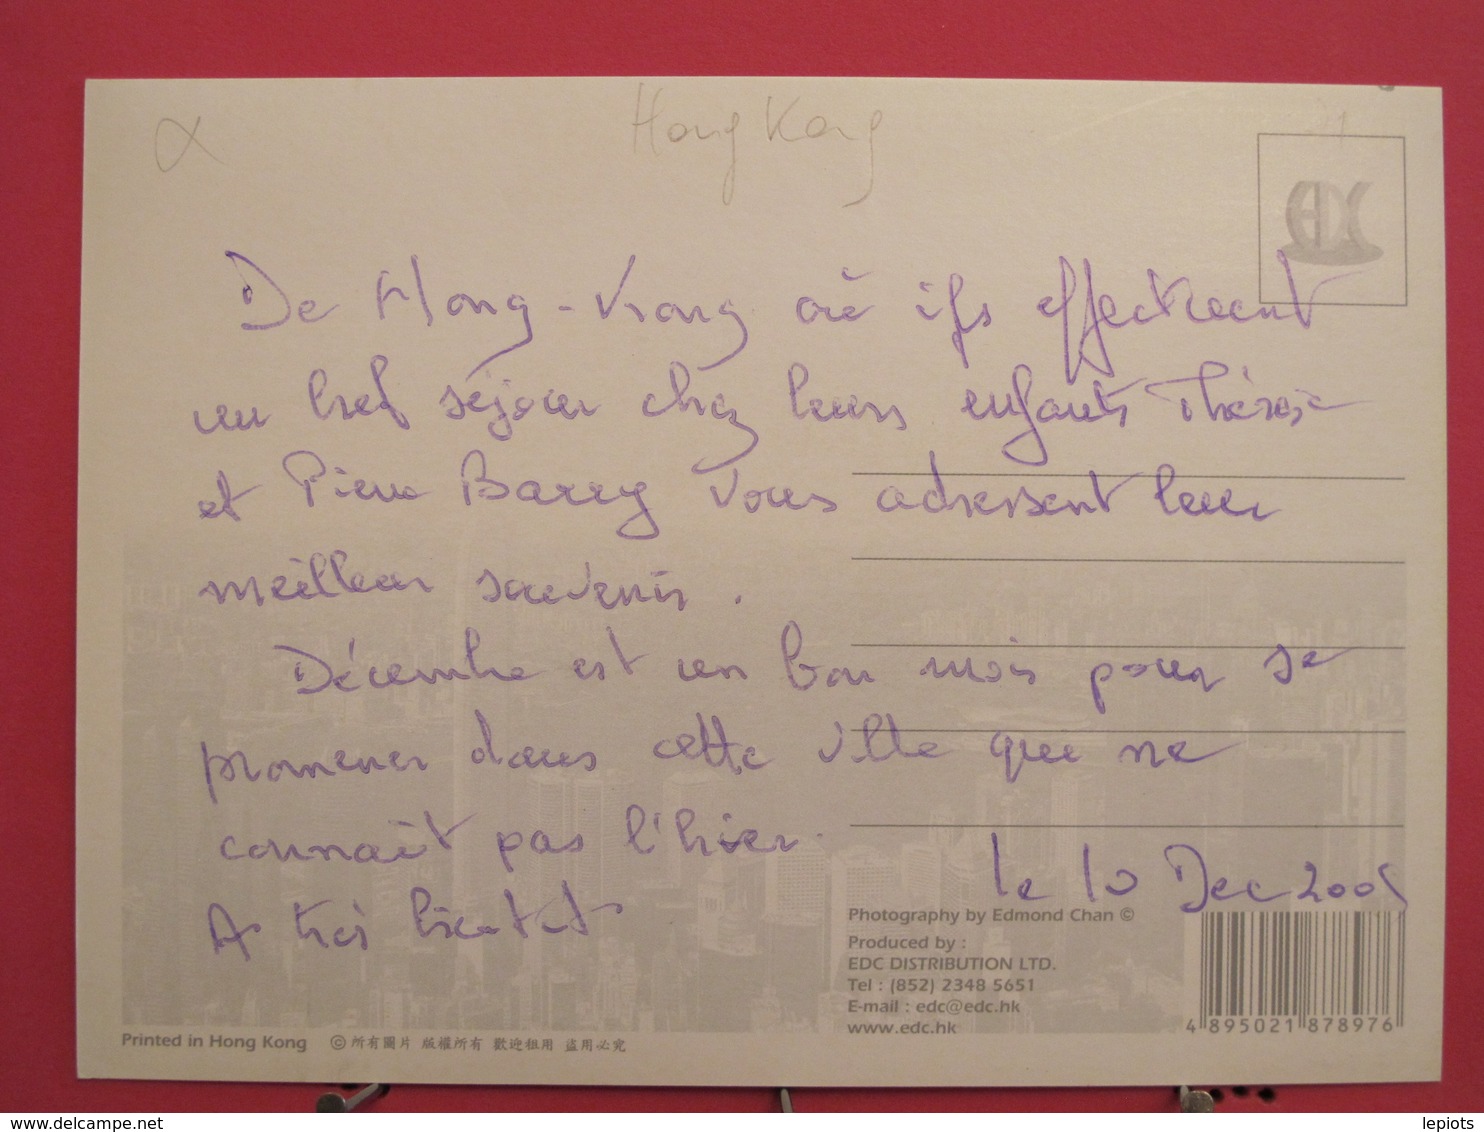 Hong Kong
De Hong-Kong où ils effectuent
un bref séjour chez leurs enfants Thérèse
et Pierre Barry vous adressent leur
meilleur souvenir.
Décembre est un bon mois pour se
promener dans cette ville que ne
connaît pas l'hiver.
A très bientôt
le 10 Dec
Photography by Edmond Chan ©
Produced by :
EDC DISTRIBUTION LTD.
Tel : (852) 2348 5651
E-mail : edc@edc.hk
www.edc.hk
4 895021 878976
Printed in Hong Kong © 所有圖片 版權所有 歡迎租用 盜用必究
www.delcampe.net
lepiots